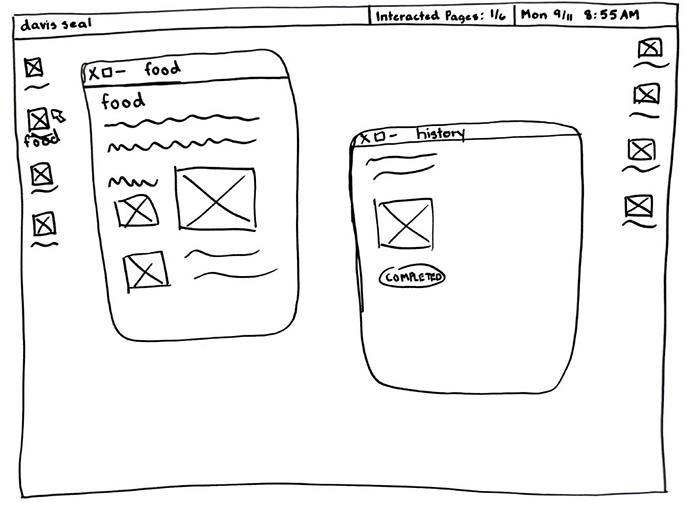 davis seal
Interacted Pages: 1/6
Mon 9/11 8:55 AM
food
X food
food
X history
COMPLETED